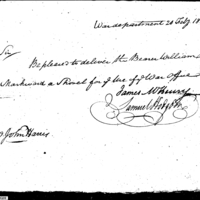 War department 20 July 18
Sir
Be pleased to deliver the Bearer William
Markward a Shovel for ye use of ye War office
James McHenry
Samuel Hodgdon
John Harris